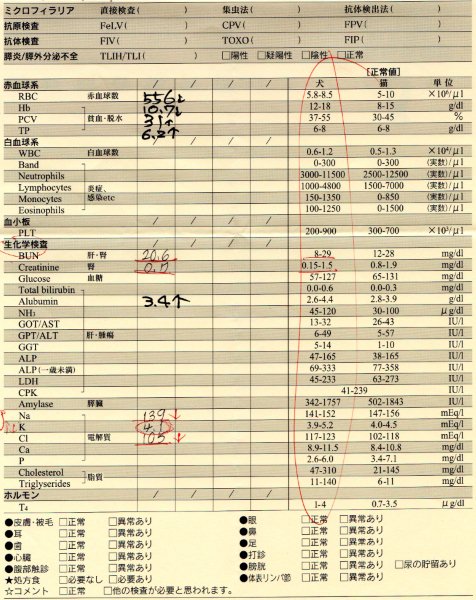 ミクロフィラリア 直接検査( ) 集虫法( ) 抗体検出法( )
抗原検査 FeLV( ) CPV( ) FPV( )
抗体検査 FIV( ) TOXO( ) FIP( )
膵炎/膵外分泌不全 TLIH/TLI( ) □陽性 □疑陽性 □陰性 □正常
[正常値]
赤血球系 / / / / 犬 猫 単位
RBC 赤血球数 556↓ 5.8-8.5 5-10 ×10⁶/μl
Hb 10.7↓ 12-18 8-15 g/dl
PCV 貧血・脱水 31↑ 37-55 30-45 %
TP 6.2↑ 6-8 6-8 g/dl
白血球系 / / / /
WBC 白血球数 0.6-1.2 0.5-1.3 ×10⁴/μl
Band 0-300 0-300 (実数)/μl
Neutrophils 3000-11500 2500-12500 (実数)/μl
Lymphocytes 炎症、 1000-4800 1500-7000 (実数)/μl
Monocytes 感染etc 150-1350 0-850 (実数)/μl
Eosinophils 100-1250 0-1500 (実数)/μl
血小板 / / / /
PLT 200-900 300-700 ×10³/μl
生化学検査 / / / /
BUN 肝・腎 20.6 8-29 12-28 mg/dl
Creatinine 腎 0.7 0.15-1.5 0.8-1.9 mg/dl
Glucose 血糖 57-127 65-131 mg/dl
Total bilirubin 0.0-0.6 0.0-0.3 mg/dl
Alubumin 3.4↑ 2.6-4.4 2.8-3.9 g/dl
NH₃ 45-120 30-100 μg/dl
GOT/AST 13-32 26-43 IU/l
GPT/ALT 肝・腫瘍 6-49 5-57 IU/l
GGT 5-14 1-10 IU/l
ALP 47-165 38-165 IU/l
ALP(一歳未満) 69-333 77-358 IU/l
LDH 45-233 63-273 IU/l
CPK 41-239 IU/l
Amylase 膵臓 342-1757 502-1843 IU/l
Na 139↓ 141-152 147-156 mEq/l
K 4.1 3.9-5.2 4.0-4.5 mEq/l
Cl 電解質 105↓ 117-123 102-118 mEq/l
Ca 8.9-11.5 8.4-10.8 mg/dl
P 2.6-6.0 3.4-7.1 mg/dl
Cholesterol 脂質 47-310 21-145 mg/dl
Triglyserides 11-140 6-11 mg/dl
ホルモン / / / /
T₄ 1-4 0.7-3.5 μg/dl
●皮膚・被毛 □正常 □異常あり ●眼 □正常 □異常あり
●耳 □正常 □異常あり ●鼻 □正常 □異常あり
●歯 □正常 □異常あり ●足 □正常 □異常あり
●心臓 □正常 □異常あり ●打診 □正常 □異常あり
●腹部触診 □正常 □異常あり ●膀胱 □正常 □異常あり □尿の貯留あり
★処方食 □必要なし □必要あり ●体表リンパ節 □正常 □異常あり
☆コメント □正常 □他の検査が必要と思われます。